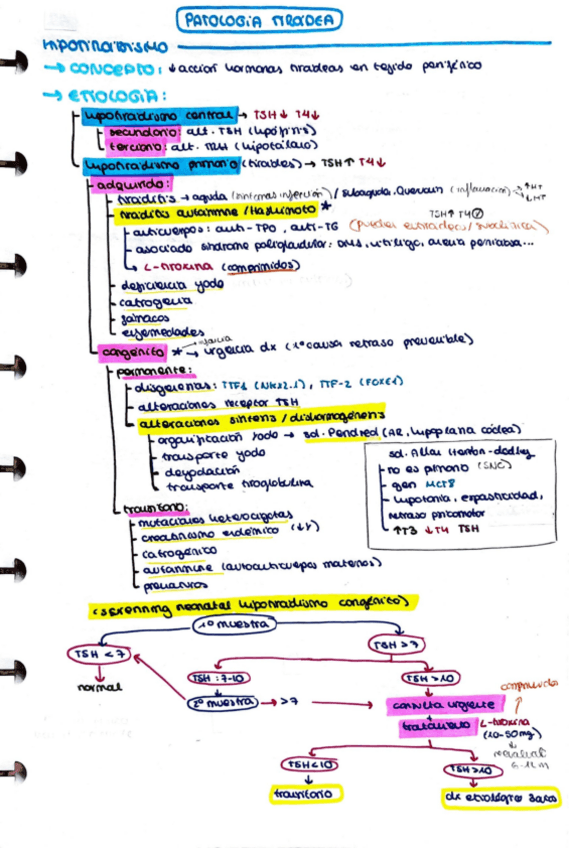 PATOLOGIA TIROIDEA
HIPOTIROIDISMO
→ CONCEPTO: ↓ acción hormonas tiroideas en tejido periférico
→ ETIOLOGIA:
hipotiroidismo central → TSH↓ T4↓
secundario: alt. TSH (hipófisis)
terciario: alt. TRH (hipotálamo)
hipotiroidismo primario (tiroides) → TSH↑ T4↓
adquirido:
tiroiditis → aguda (síntomas infección) / subaguda. Quervain (inflamación) → ↑HT ↓HT
tiroiditis autoinmune / Hashimoto *
TSH↑ T4
anticuerpos: anti-TPO, anti-TG (pueden eutiroideos / subclínica)
asociado síndrome poliglandular: DM1, vitíligo, anemia perniciosa...
↳ L-tiroxina (comprimidos)
deficiencia yodo
iatrogenia
fármacos
enfermedades
congénito * → urgencia dx (1ª causa retraso prevenible)
infancia
permanente:
disgenesias: TTF1 (NKX2.1), TTF-2 (FOXE1)
alteraciones receptor TSH
alteraciones síntesis / dishormogénesis
organificación yodo → sd. Pendred (AR, hipoplasia cóclea)
transporte yodo
deyodación
transporte tiroglobulina
sd. Allan Herdon-dudley
no es primario (SNC)
gen MCT8
hipotonía, espasticidad,
retraso psicomotor
↑T3 ↓T4 TSH
transitorio:
mutaciones heterocigotas
cretinismo endémico (↓I)
iatrogénico
autoinmune (autoanticuerpos maternos)
prematuros
(screening neonatal hipotiroidismo congénito)
1º muestra
TSH < 7
TSH > 7
normal
TSH: 7-10
TSH > 10
2º muestra → >7
consulta urgente
comprimidos
tratamiento L-tiroxina
(10-50mg)
reevaluar
6-12m
TSH < 10
TSH > 10
transitorio
dx etiológico 3años